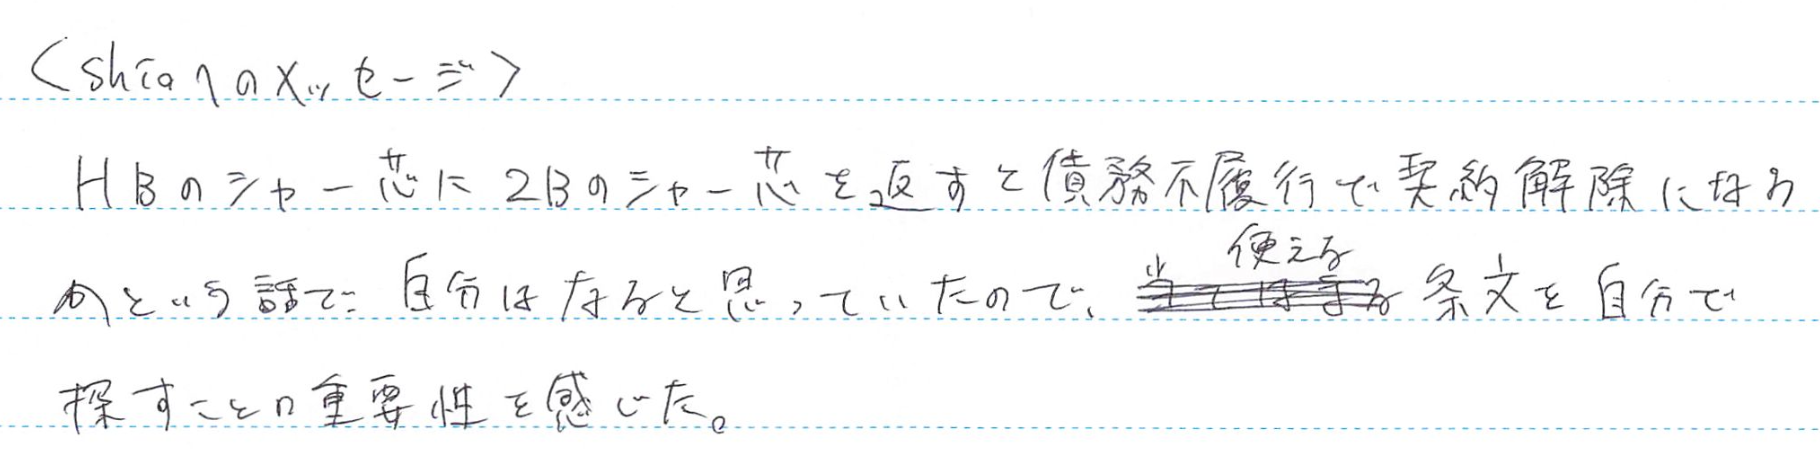 <shiaへのメッセージ>
HBのシャー芯に2Bのシャー芯を返すと債務不履行で契約解除になる
かという話で自分はなると思っていたので、使える条文を自分で
探すことの重要性を感じた。